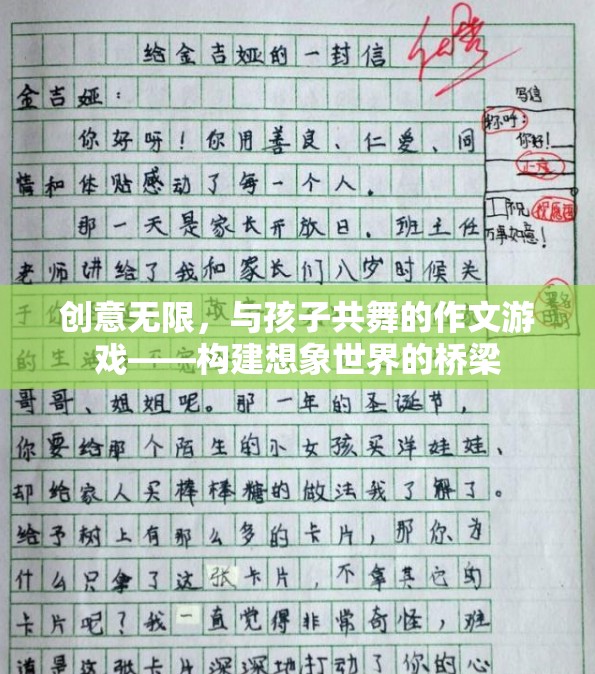 给金吉娅的一封信
金吉娅：
你好呀！你用善良、仁爱、同
情和体贴感动了每一个人。
那一天是家长开放日，班主任
老师讲给了我和家长们八岁时候关
于你
创意无限，与孩子共舞的作文游
戏——构建想象世界的桥梁
的生
哥哥、姐姐呢。那一年的圣诞节，
你要给那个陌生的小女孩买洋娃娃、
却给家人买棒棒糖的做法我了解了。
给予树上有那么多的卡片，那你为
什么只拿了这张卡片，不拿其它的
卡片呢？我一直觉得非常奇怪，难
道是这张卡片深深地打动了你的心
写信
称呼：
你好！
正文
祝
祝愿语
万事如意！
署名
日期